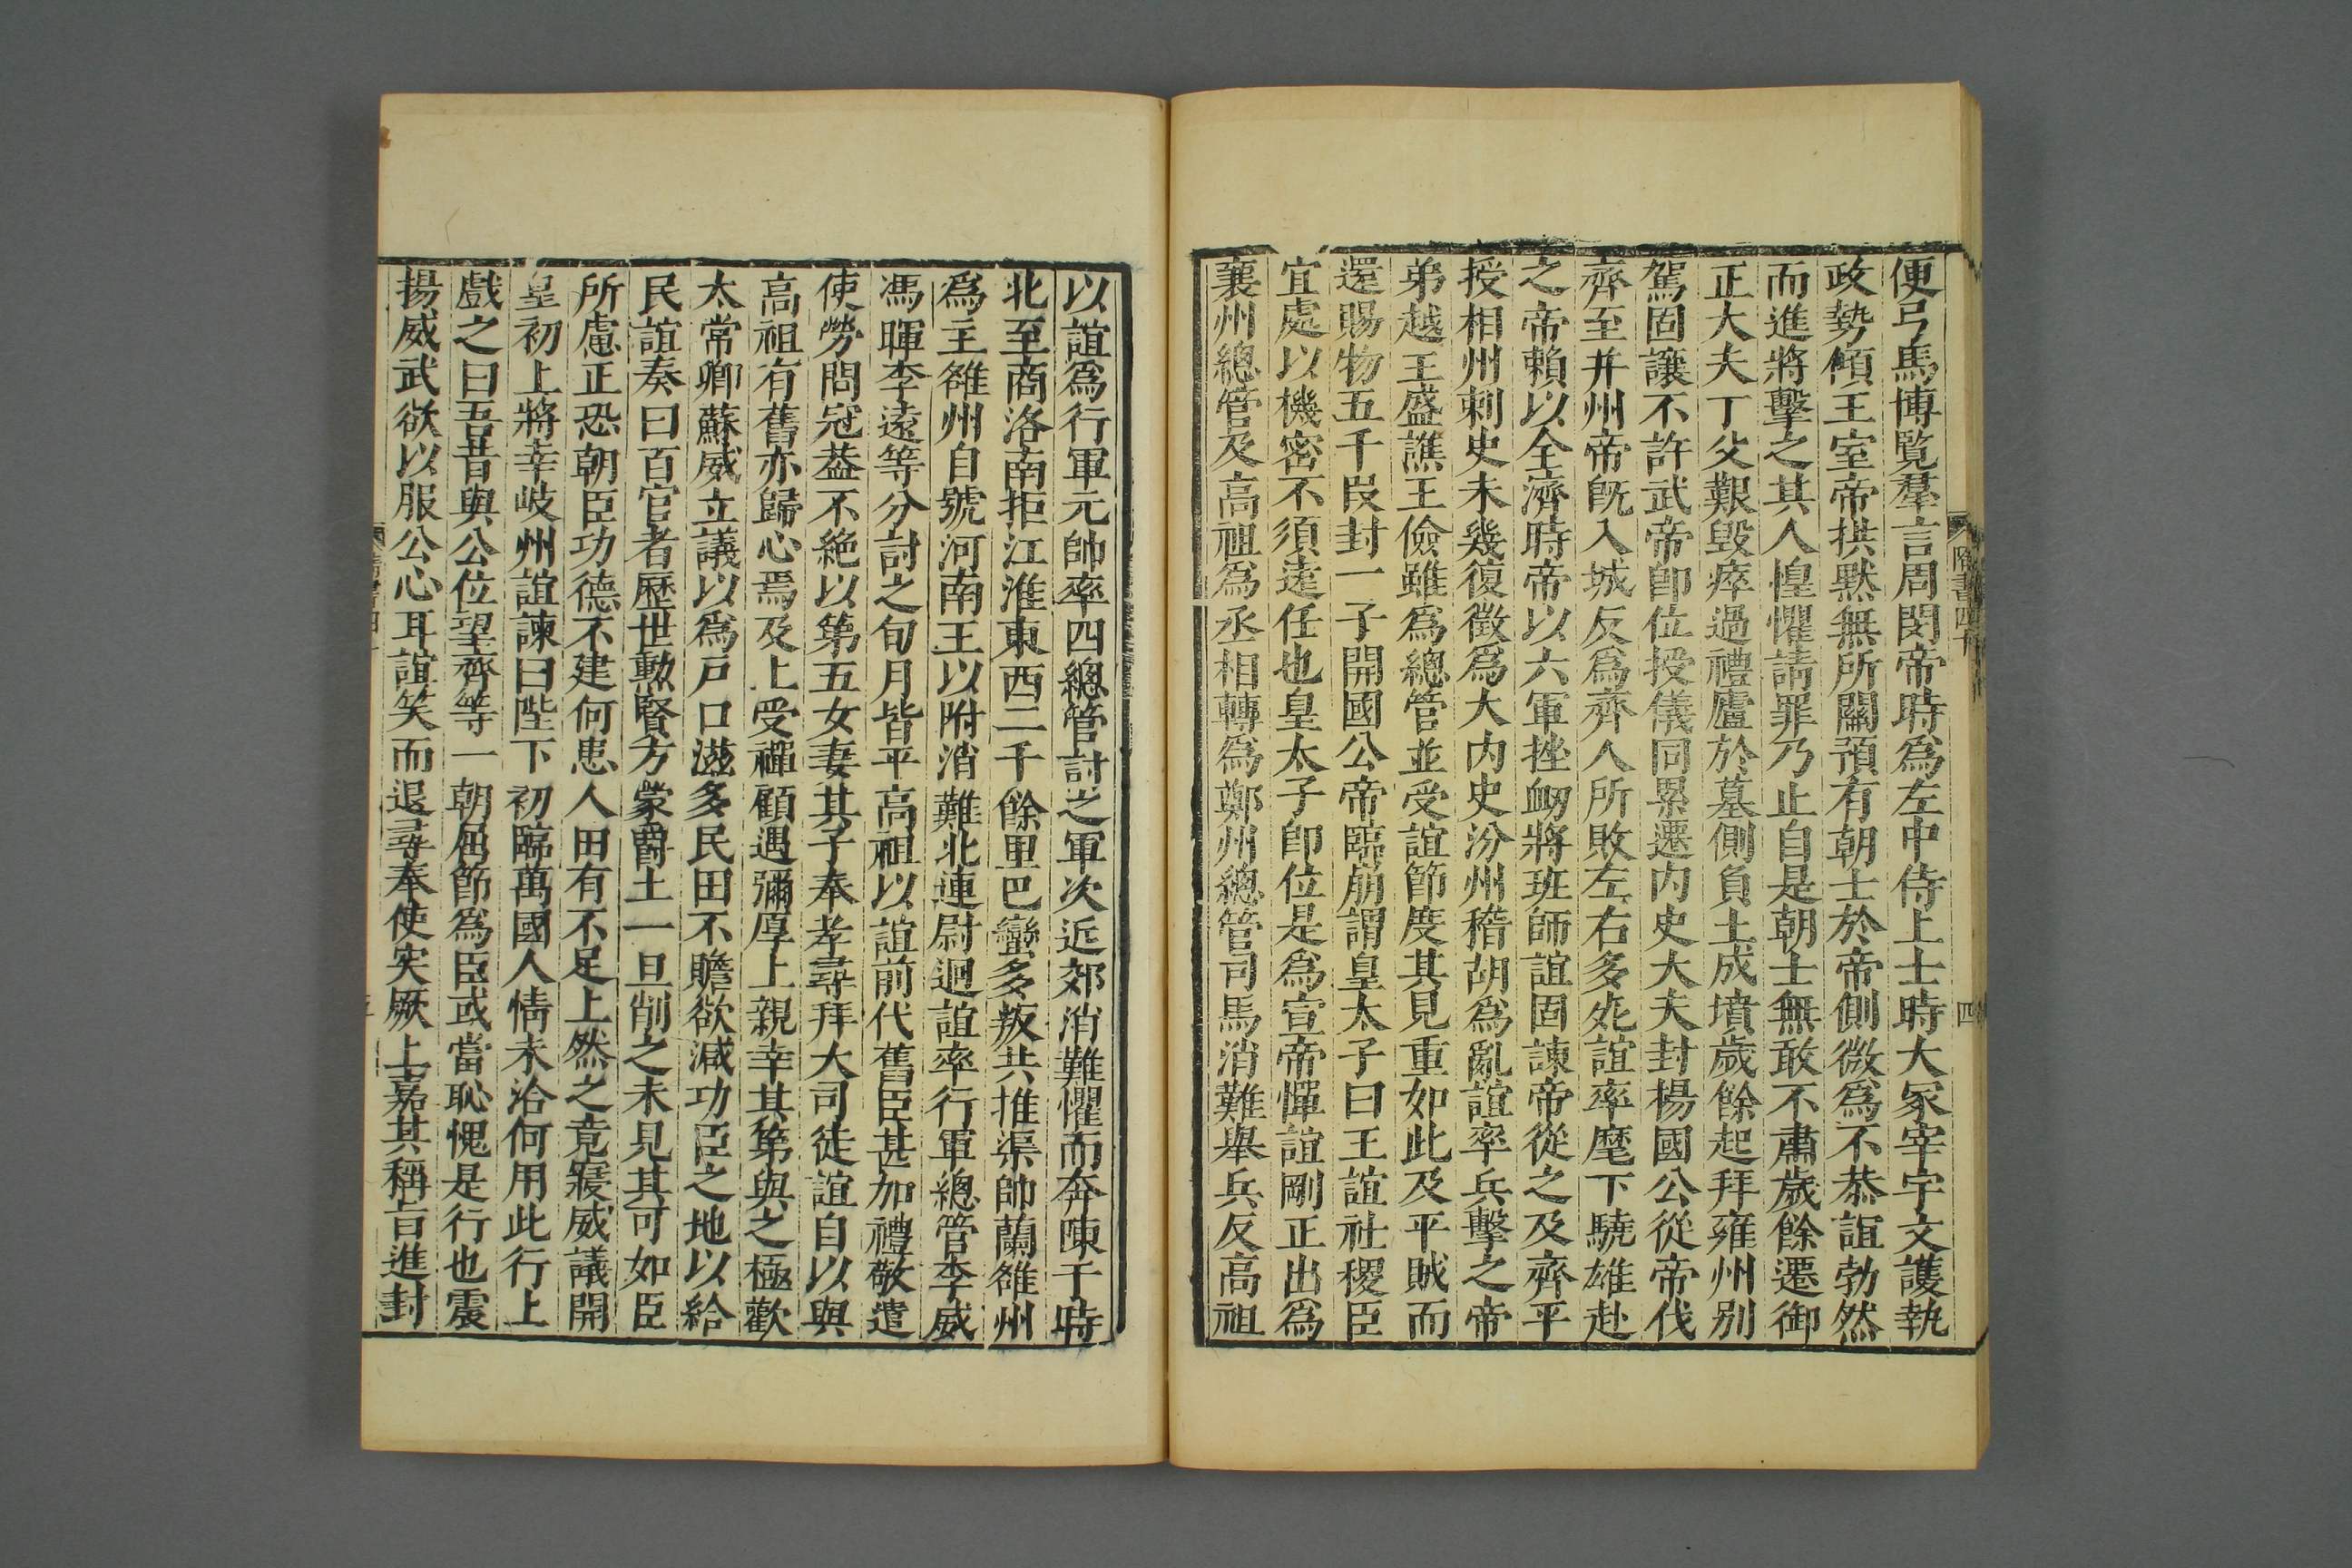 便弓馬博覧羣言周閔帝時爲左中侍上士時大冢宰宇文護執
政勢傾王室帝拱黙無所關預有朝士於帝側微爲不恭誼勃然
而進將擊之其人惶懼請罪乃止自是朝士無敢不肅歲餘遷御
正大夫丁父艱毀瘁過禮廬於墓側負土成墳歲餘起拜雍州别
駕固讓不許武帝即位授儀同累遷内史大夫封楊國公從帝伐
齊至并州帝旣入城反爲齊人所敗左右多死誼率麾下驍雄赴
之帝賴以全濟時帝以六軍挫衂將班師誼固諫帝從之及齊平
授相州刺史未幾復徵爲大内史汾州稽胡爲亂誼率兵擊之帝
弟越王盛譙王儉雖爲總管並受誼節度其見重如此及平賊而
還賜物五千段封一子開國公帝臨崩謂皇太子曰王誼社稷臣
宜處以機密不須遠任也皇太子即位是爲宣帝憚誼剛正出爲
襄州總管及高祖爲丞相轉爲鄭州總管司馬消難舉兵反高祖
隋書四十
四
以誼爲行軍元帥率四總管討之軍次近郊消難懼而奔陳于時
北至商洛南拒江淮東西二千餘里巴蠻多叛共推渠帥蘭雒州
爲主雒州自號河南王以附消難北連尉迥誼率行軍總管李威
馮暉李遠等分討之旬月皆平高祖以誼前代舊臣甚加禮敬遣
使勞問冠葢不絶以第五女妻其子奉孝尋拜大司徒誼自以與
高祖有舊亦歸心焉及上受禪顧遇彌厚上親幸其第與之極歡
太常卿蘇威立議以爲戸口滋多民田不贍欲減功臣之地以給
民誼奏曰百官者歷世勲賢方蒙爵土一旦削之未見其可如臣
所慮正恐朝臣功德不建何患人田有不足上然之竟寢威議開
皇初上將幸岐州誼諫曰陛下初臨萬國人情未洽何用此行上
戲之曰吾昔與公位望齊等一朝屈節爲臣或當恥愧是行也震
揚威武欲以服公心耳誼笑而退尋奉使突厥上嘉其稱旨進封